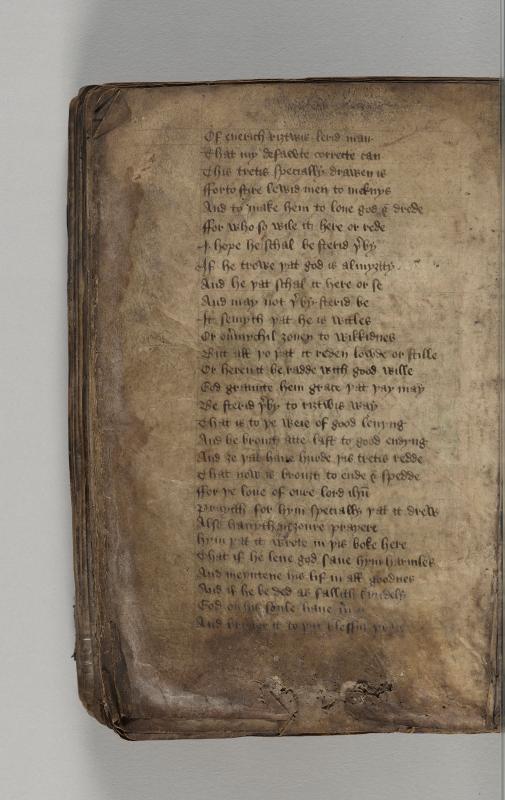 Of euerich riztwis lerid man
That my defawte correcte can
This tretis specially drawen is
fforto stire lewid men to meknys
And to make hem to loue god & drede
ffor who so wile it here or rede
I hope he schal be sterid þ͛by
If he trowe þat god is almyzty
And he þat schal it here or se
And may not þ͛by sterid be
It semyth þat he is witles
Or ou͛mychil zouen to wikkidnes
But all þo þat it reden lowde or stille
Or heren it be radde with good wille
God graunte hem grace þat þay may
Be sterid þ͛by to riztwis way
That is to þe weie of good leuyng
And be brouzt atte last to good endyng
And ze þat haue hurde þis tretis redde
That now is brouzt to ende & spedde
ffor þe loue of oure lord ihū
Prayith for hym specially þat it drew
Also in zoure prayere
hym þat it wrote in þis boke here
That if he leue god saue hym harmles
And meyntene his lif in all goodnes
And if he be ded as fallith
God on his soule haue
And bringe it to þat blessful